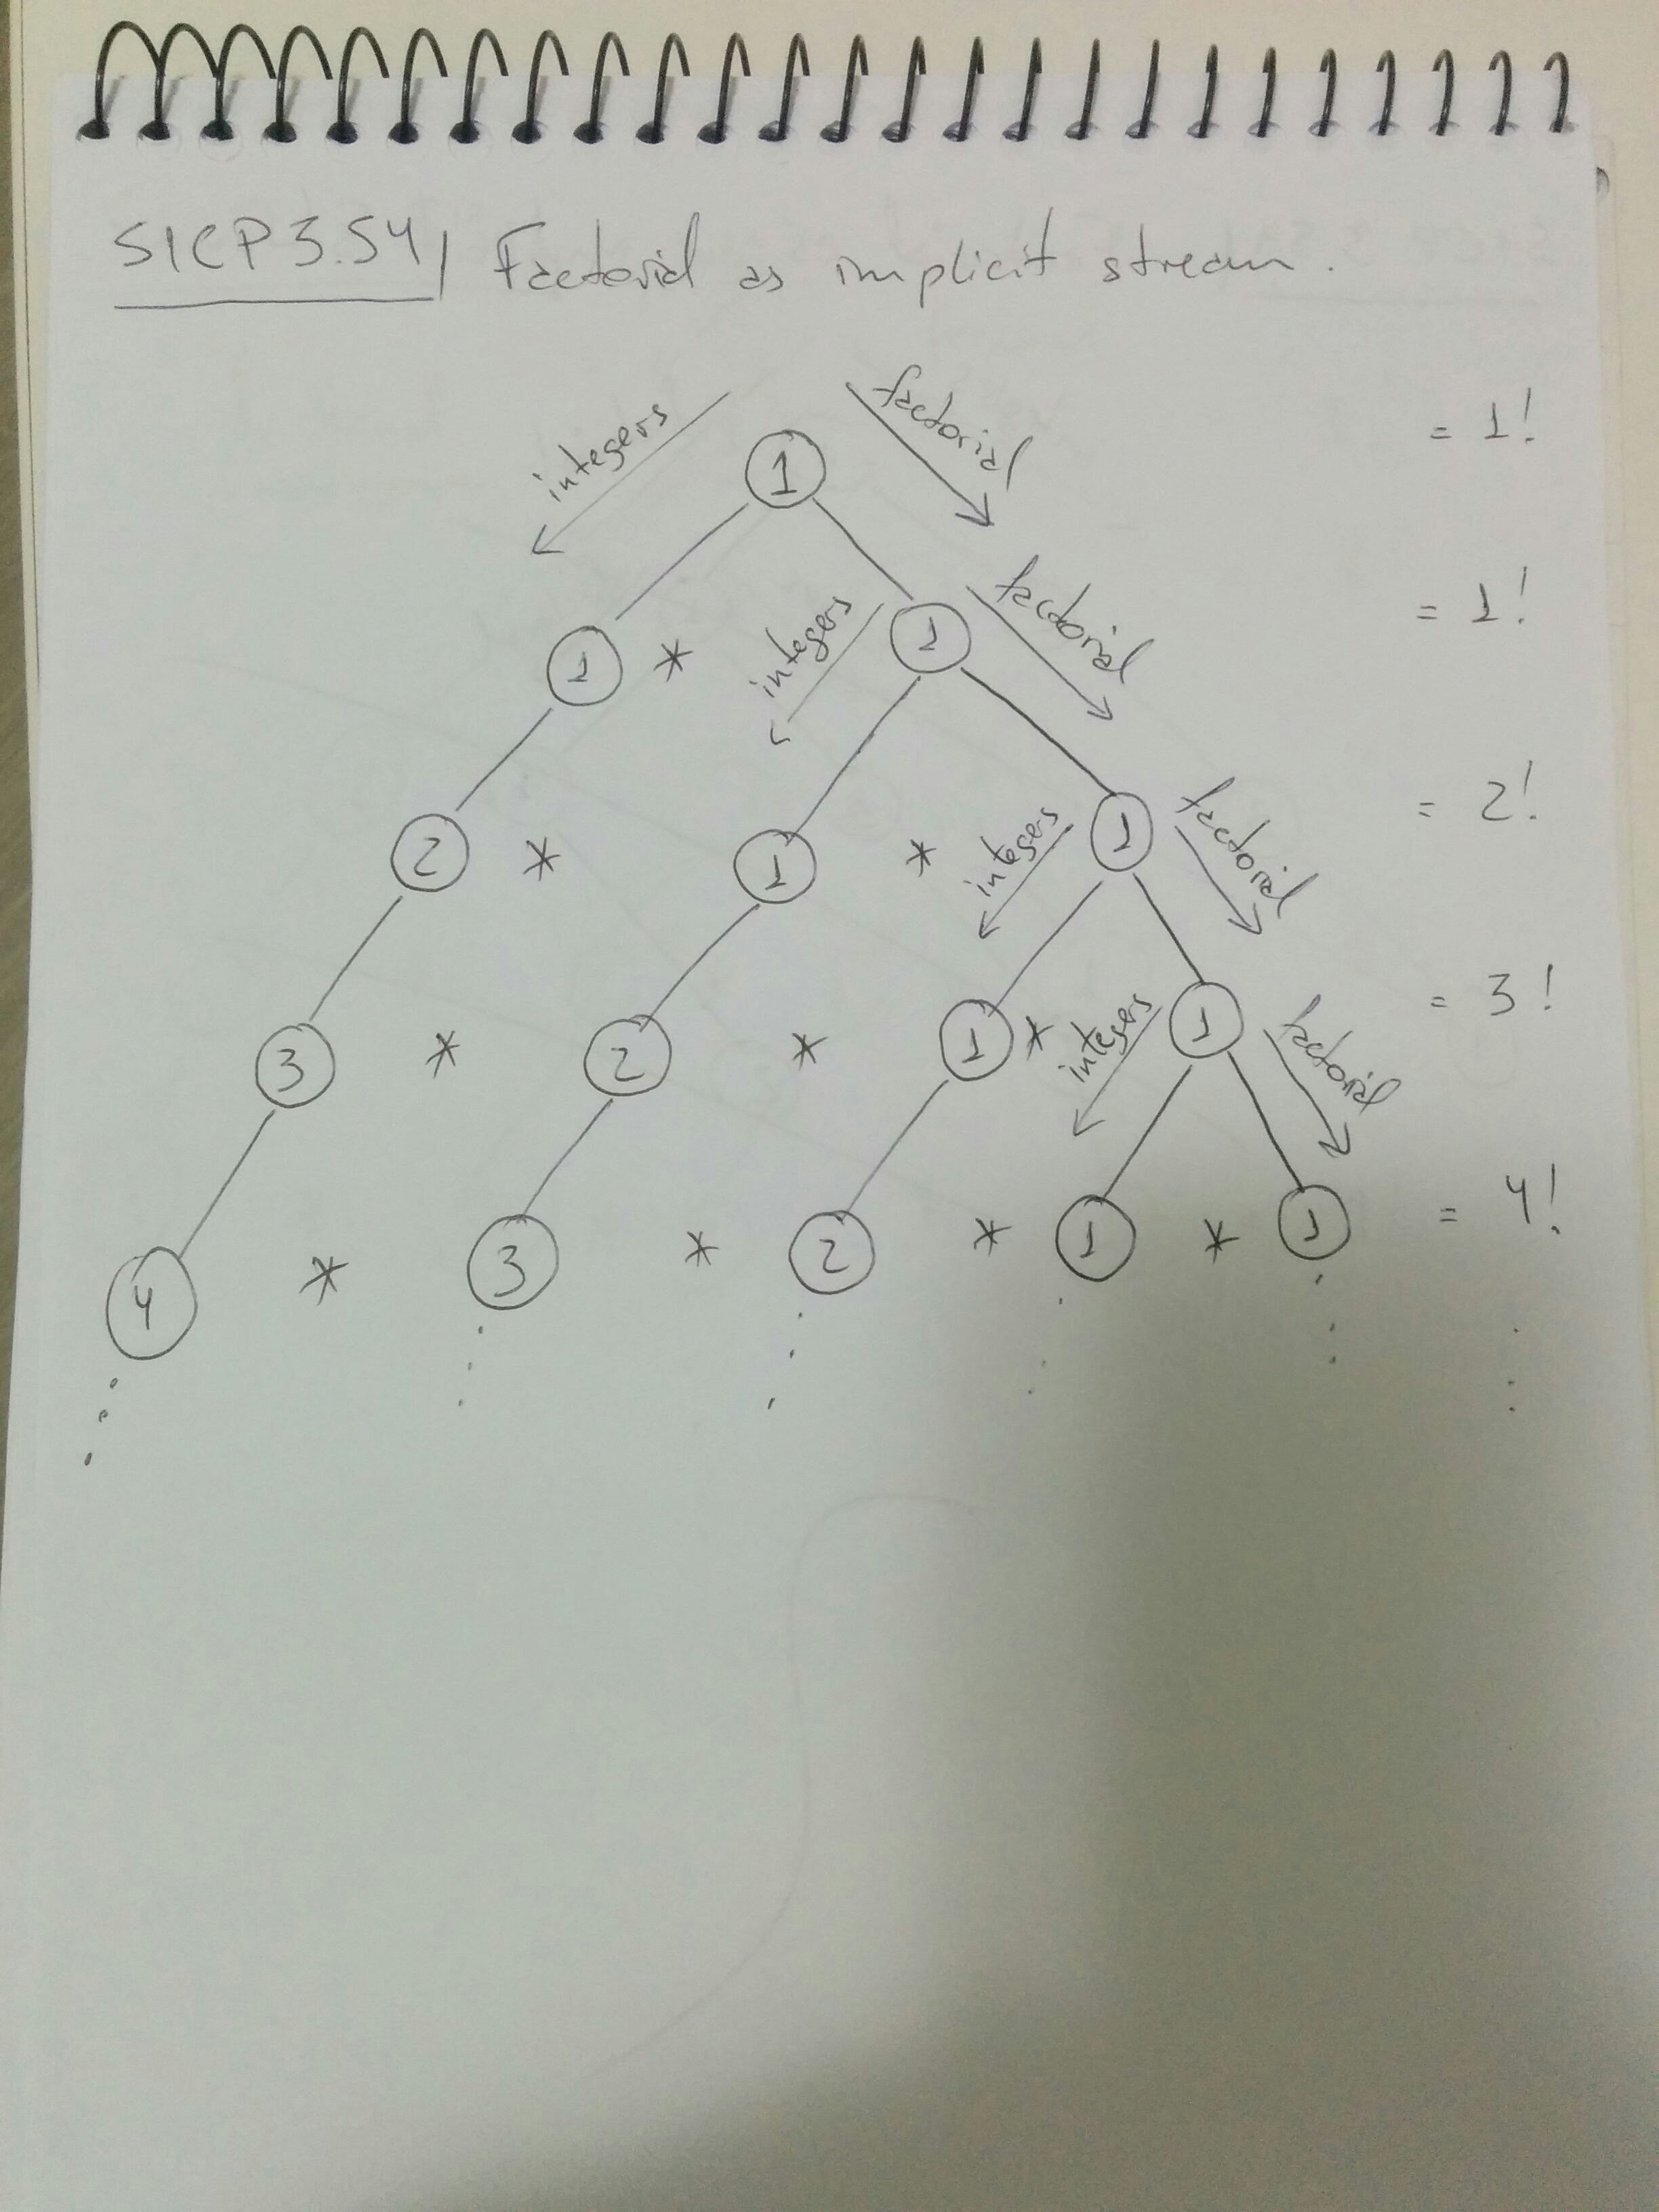 SICP 3.54 / Factorial as implicit stream.
integers factorial = 1!
1
integers factorial = 1!
1 * 1
integers factorial = 2!
2 * 1 * 1
integers factorial = 3!
3 * 2 * 1 * 1
4 * 3 * 2 * 1 * 1 = 4!